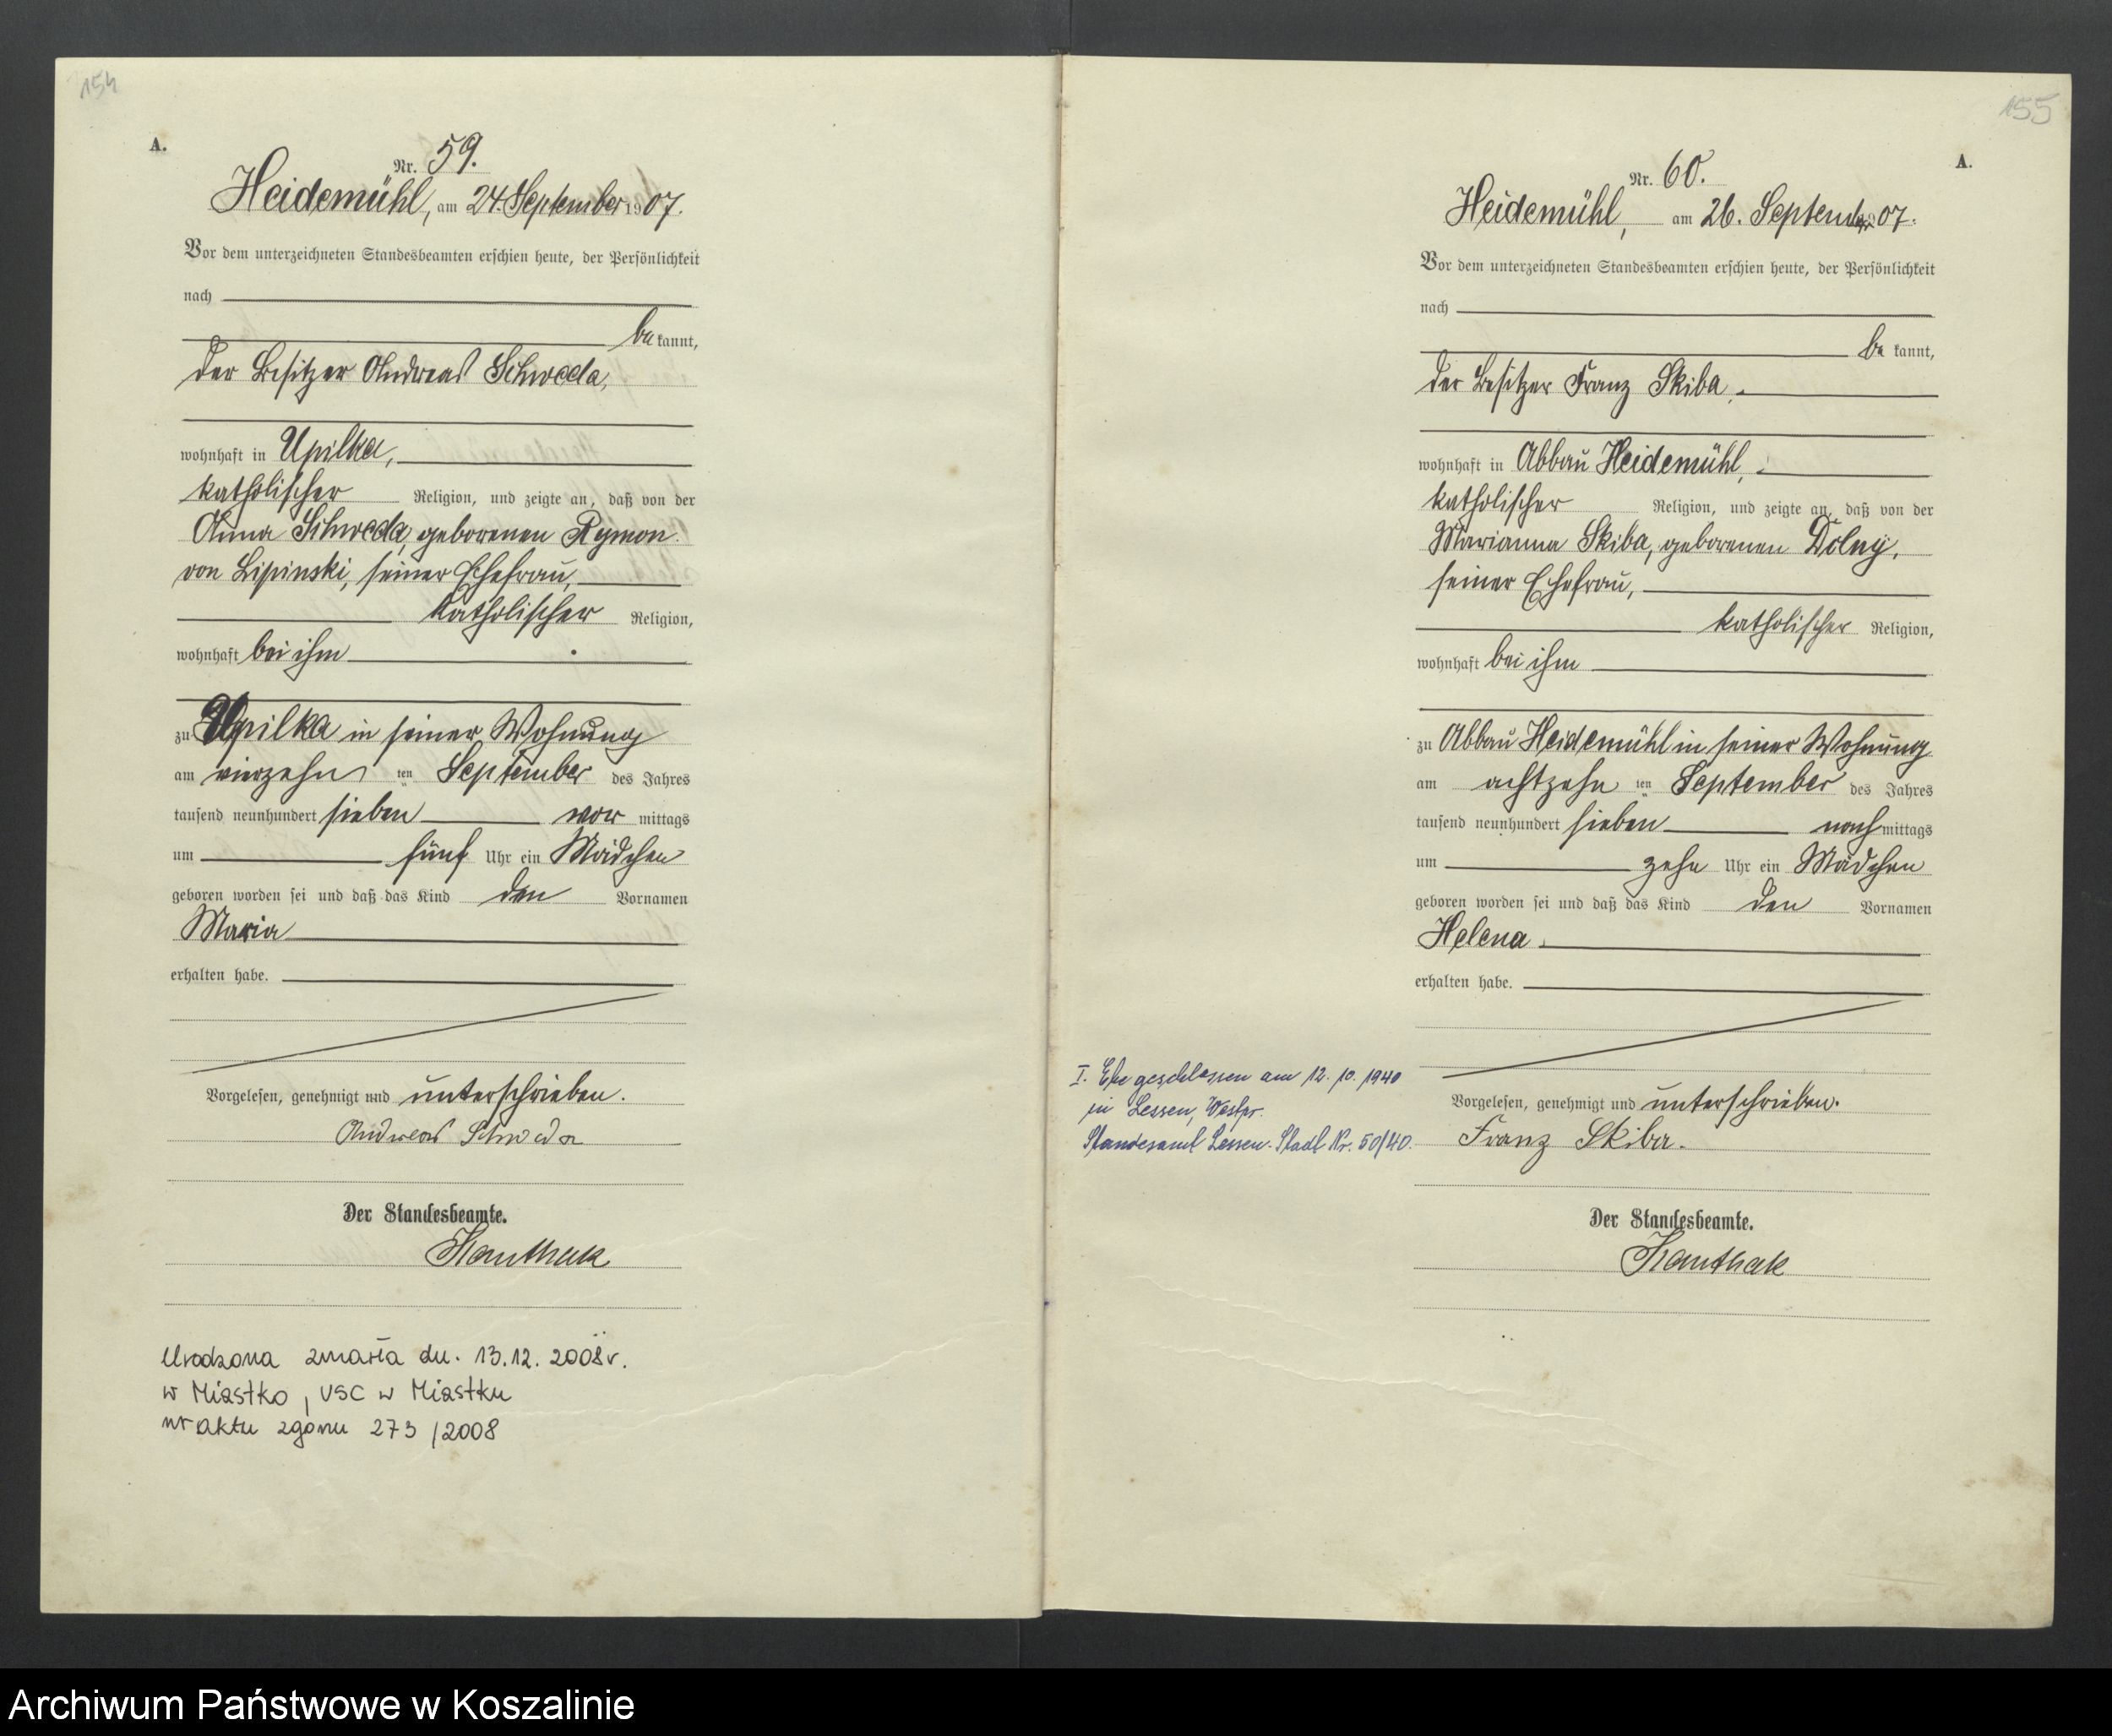 154
A.
Nr. 59.
Heidemühl, am 24. September 1907.
Vor dem unterzeichneten Standesbeamten erschien heute, der Persönlichkeit
nach
be kannt,
der Besitzer Andreas Schweda,
wohnhaft in Upilka,
katholischer Religion, und zeigte an, daß von der
Anna Schweda, geborenen Rymon
von Lipinski, seiner Ehefrau,
katholischer Religion,
wohnhaft bei ihm
zu Upilka in seiner Wohnung
am vierzehn ten September des Jahres
tausend neunhundert sieben vor mittags
um fünf Uhr ein Mädchen
geboren worden sei und daß das Kind den Vornamen
Maria
erhalten habe.
Vorgelesen, genehmigt und unterschrieben.
Andreas Schweda
Der Standesbeamte.
Kauthak
Urodzona zmarła dn. 13.12.2008 r.
w Miastko, USC w Miastku
nr aktu zgonu 273/2008
155
A.
Nr. 60.
Heidemühl, am 26. September 1907.
Vor dem unterzeichneten Standesbeamten erschien heute, der Persönlichkeit
nach
be kannt,
der Besitzer Franz Skiba,
wohnhaft in Abbau Heidemühl,
katholischer Religion, und zeigte an, daß von der
Marianna Skiba, geborenen Dolny,
seiner Ehefrau,
katholischer Religion,
wohnhaft bei ihm
zu Abbau Heidemühl in seiner Wohnung
am achtzehn ten September des Jahres
tausend neunhundert sieben nach mittags
um zehn Uhr ein Mädchen
geboren worden sei und daß das Kind den Vornamen
Helena
erhalten habe.
I. Ehe geschlossen am 12.10.1940
in Lessen, Westpr.
Standesamt Lessen-Stadt Nr. 50/40.
Vorgelesen, genehmigt und unterschrieben.
Franz Skiba.
Der Standesbeamte.
Kauthak
Archiwum Państwowe w Koszalinie